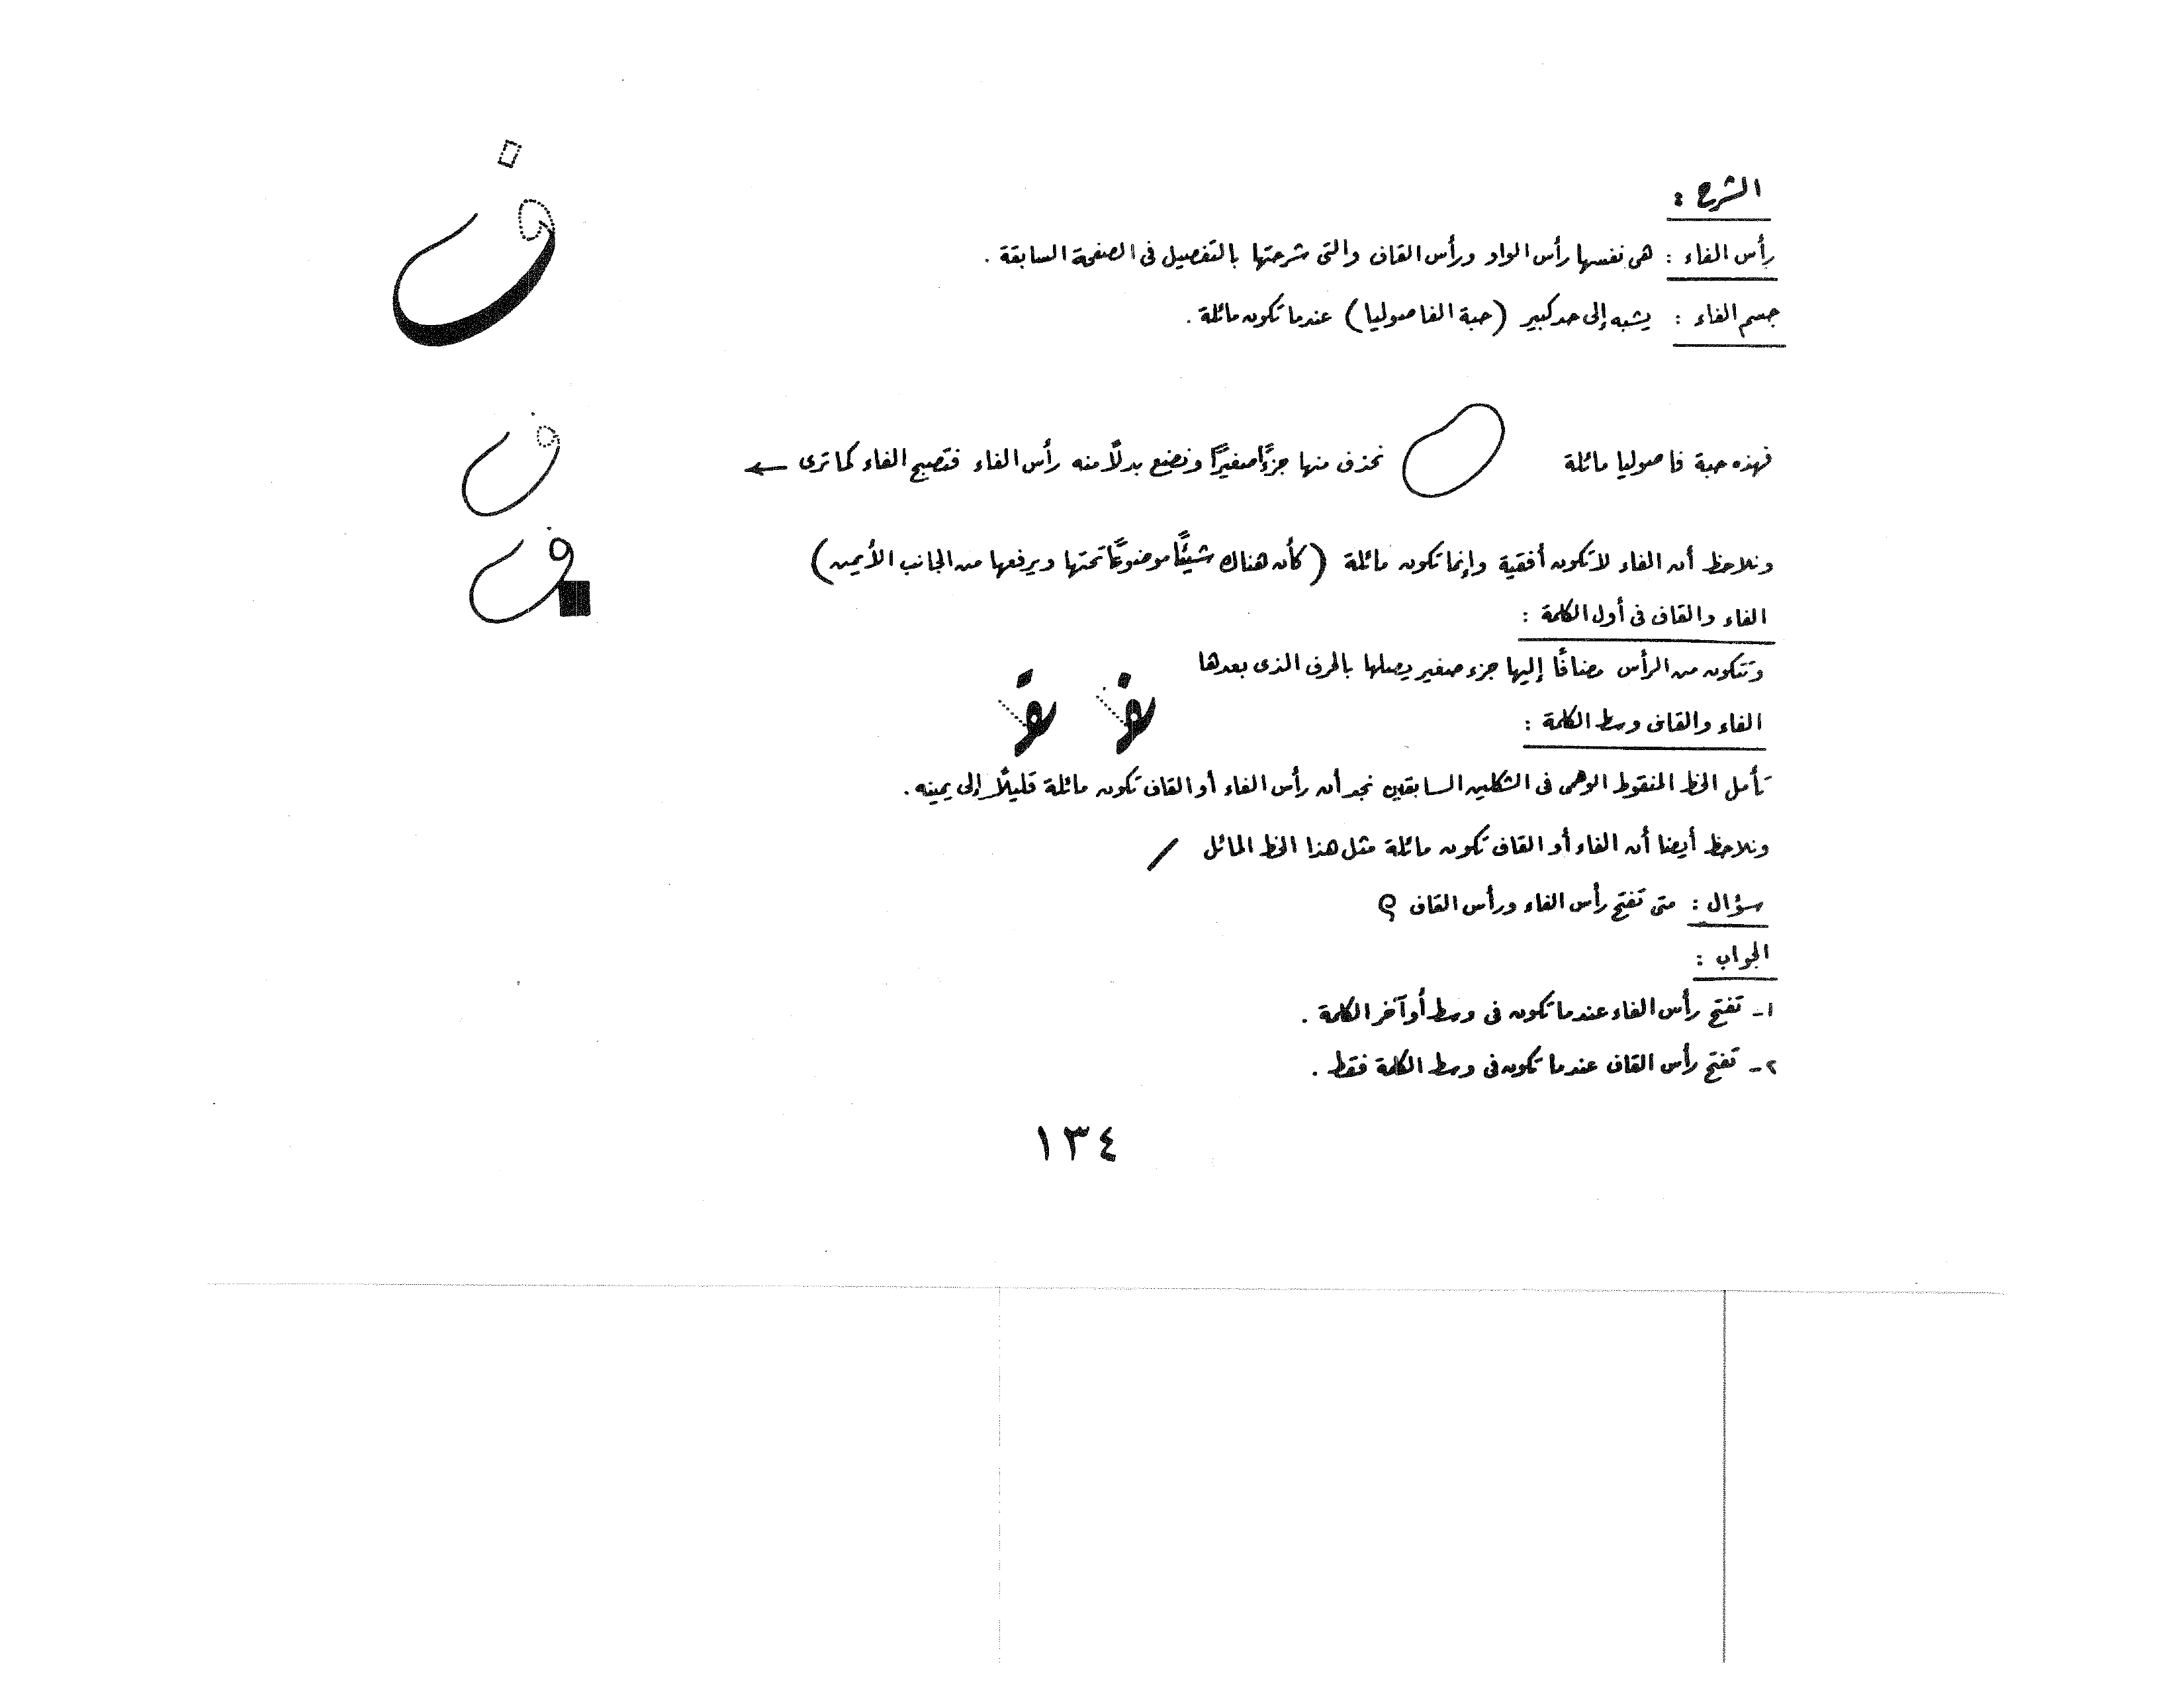 الشرح :
رأس الفاء : هى نفسها رأس الواو ورأس القاف والتى شرحتها بالتفصيل فى الصفحة السابقة .
جسم الفاء : يشبه إلى حد كبير (حبة الفاصوليا) عندما تكون مائلة .
فهذه حبة فاصوليا مائلة نحذف منها جزءًا صغيرًا ونضع بدلًا منه رأس الفاء فتصبح الفاء كما ترى ←
ونلاحظ أن الفاء لا تكون أفقية وإنما تكون مائلة (كأن هناك شيئًا موضوعًا تحتها ويرفعها من الجانب الأيمن)
الفاء والقاف فى أول الكلمة :
وتتكون من الرأس مضافًا إليها جزء صغير يصلها بالحرف الذى بعدها
الفاء والقاف وسط الكلمة :
تأمل الخط المنقوط الوهمى فى الشكلين السابقين نجد أن رأس الفاء أو القاف تكون مائلة قليلًا إلى يمينه .
ونلاحظ أيضا أن الفاء أو القاف تكون مائلة مثل هذا الخط المائل /
سؤال : متى تفتح رأس الفاء ورأس القاف ؟
الجواب :
١- تفتح رأس الفاء عندما تكون فى وسط أو آخر الكلمة .
٢- تفتح رأس القاف عندما تكون فى وسط الكلمة فقط .
١٣٤
ف
ف
ف
ف ق